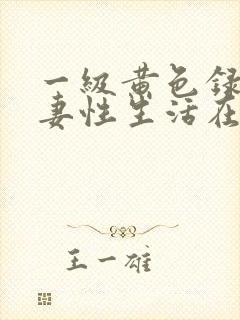 一級黄色録
妻性生活在
王一雄